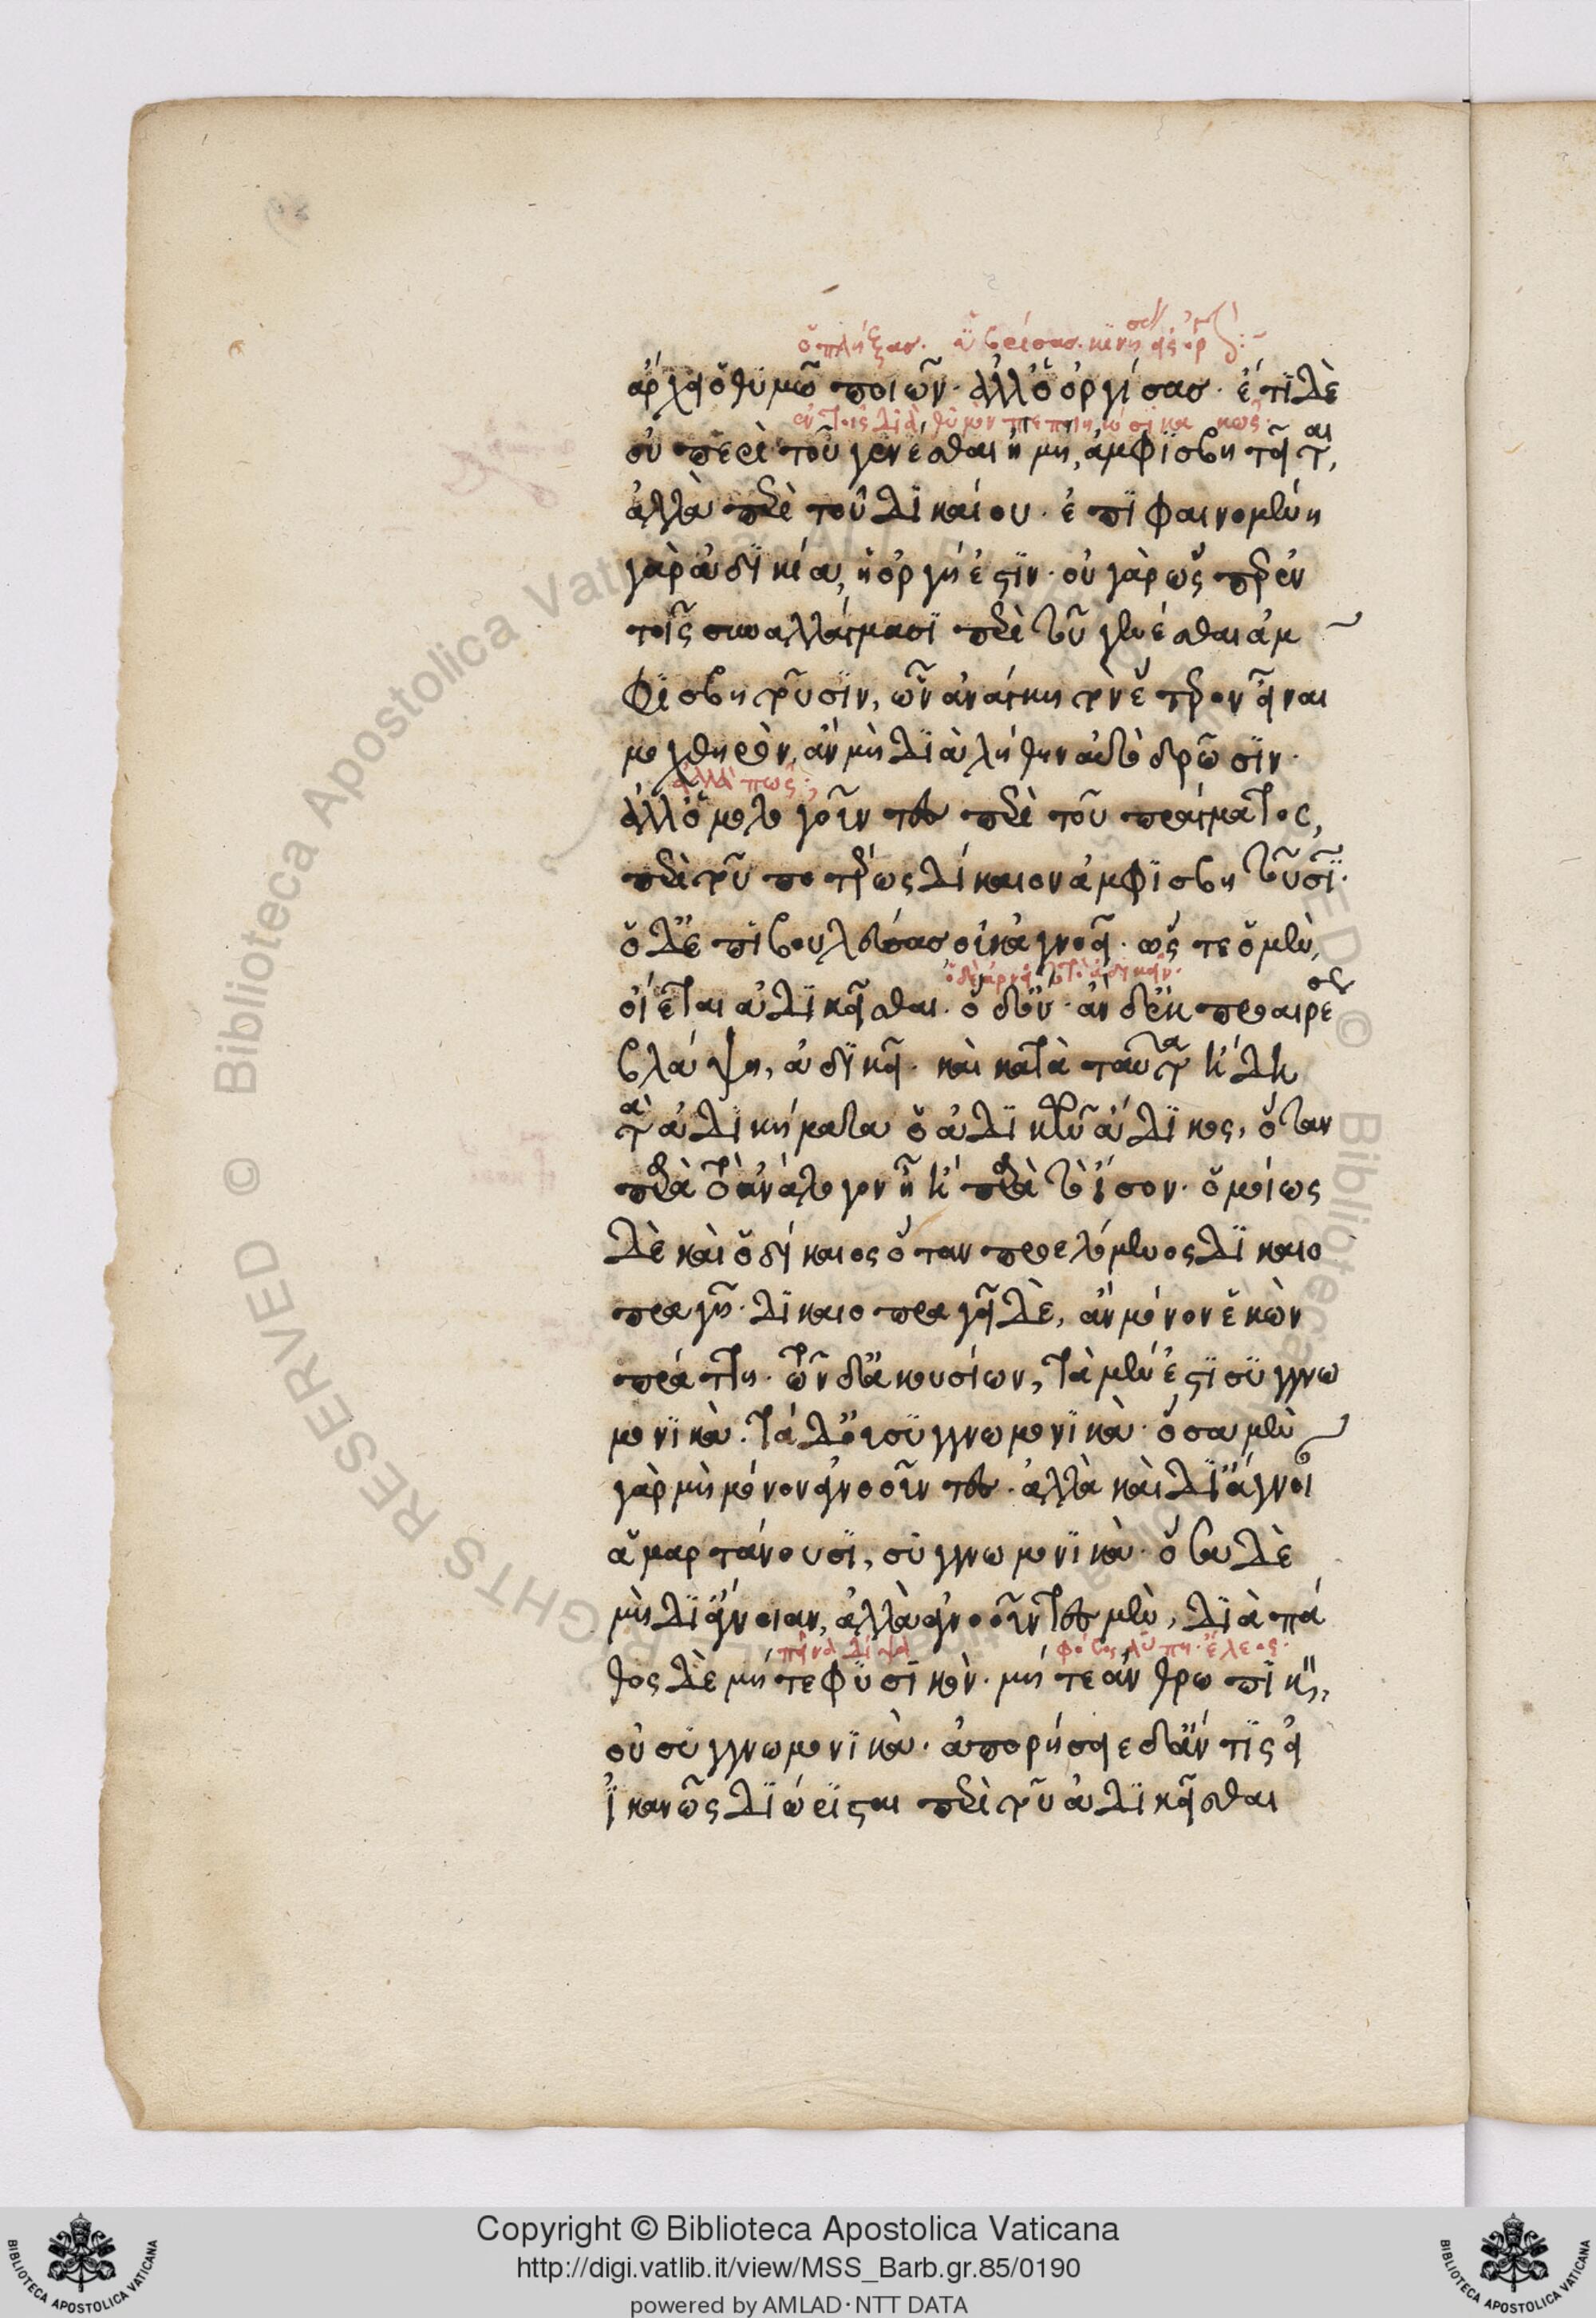 ἄρχει ὁ θυμῷ ποιῶν· ἀλλ' ὁ ὀργίσας· ἔτι δὲ
οὐ περὶ τοῦ γενέσθαι ἢ μὴ, ἀμφισβητεῖται,
ἀλλὰ περὶ τοῦ δικαίου· ἐπὶ φαινομένη
γὰρ ἀδικία, ἡ ὀργή ἐστιν· οὐ γὰρ ὥσπερ ἐν
τοῖς συναλλάγμασι περὶ τοῦ γενέσθαι ἀμ
φισβητοῦσιν, ὧν ἀνάγκη τὸν ἕτερον εἶναι
μοχθηρὸν, ἂν μὴ διὰ λήθην αὐτὸ δρῶσιν·
ἀλλὰ πῶς·
ἀλλ' ὁμολογοῦντες περὶ τοῦ πράγματος,
περὶ τοῦ ποτέρως δίκαιον ἀμφισβητοῦσι·
ὁ δ' ἐπιβουλεύσας οὐκ ἀγνοεῖ· ὥστε ὁ μὲν,
οἴεται ἀδικεῖσθαι· ὁ δ' οὔ· ἂν δ' ἐκ προαιρέσεως
βλάψῃ, ἀδικεῖ· καὶ κατὰ ταῦτα ἤδη
τὰ ἀδικήματα ὁ ἀδικῶν ἄδικος, ὅταν
παρὰ τὸ ἀνάλογον ᾖ ἢ παρὰ τὸ ἴσον· ὁμοίως
δὲ καὶ ὁ δίκαιος ὅταν προελόμενος δικαιο
πραγῇ· δικαιοπραγεῖ δὲ, ἂν μόνον ἑκὼν
πράττῃ· τῶν δ' ἀκουσίων, τὰ μέν ἐστι συγγνω
μονικὰ· τὰ δ' οὐ συγγνωμονικὰ· ὅσα μὲν
γὰρ μὴ μόνον ἀγνοοῦντες· ἀλλὰ καὶ δι' ἄγνοι
ἁμαρτάνουσι, συγγνωμονικὰ· ὅσα δὲ
μὴ δι' ἄγνοιαν, ἀλλ' ἀγνοοῦντες μὲν, διὰ πά
πεῖνα δίψα φόβος λύπη· ἔλεος·
θος δὲ μήτε φυσικὸν· μήτε ἀνθρωπικὸν,
οὐ συγγνωμονικὰ· ἀπορήσειε δ' ἄν τις εἰ
ἱκανῶς διώρισται περὶ τοῦ ἀδικεῖσθαι
Copyright © Biblioteca Apostolica Vaticana
http://digi.vatlib.it/view/MSS_Barb.gr.85/0190
powered by AMLAD·NTT DATA